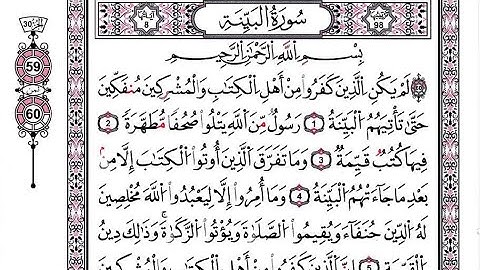 سُورَةُ البَيِّنَةِ
8
98
30
بِسْمِ اللَّهِ الرَّحْمَٰنِ الرَّحِيمِ
59
60
لَمْ يَكُنِ الَّذِينَ كَفَرُوا مِنْ أَهْلِ الْكِتَابِ وَالْمُشْرِكِينَ مُنفَكِّينَ
حَتَّىٰ تَأْتِيَهُمُ الْبَيِّنَةُ 1 رَسُولٌ مِّنَ اللَّهِ يَتْلُوا صُحُفًا مُّطَهَّرَةً 2
فِيهَا كُتُبٌ قَيِّمَةٌ 3 وَمَا تَفَرَّقَ الَّذِينَ أُوتُوا الْكِتَابَ إِلَّا مِن
بَعْدِ مَا جَاءَتْهُمُ الْبَيِّنَةُ 4 وَمَا أُمِرُوا إِلَّا لِيَعْبُدُوا اللَّهَ مُخْلِصِينَ
لَهُ الدِّينَ حُنَفَاءَ وَيُقِيمُوا الصَّلَاةَ وَيُؤْتُوا الزَّكَاةَ ۚ وَذَٰلِكَ دِينُ
الْقَيِّمَةِ 5 إِنَّ الَّذِينَ كَفَرُوا مِنْ أَهْلِ الْكِتَابِ وَالْمُشْرِكِينَ